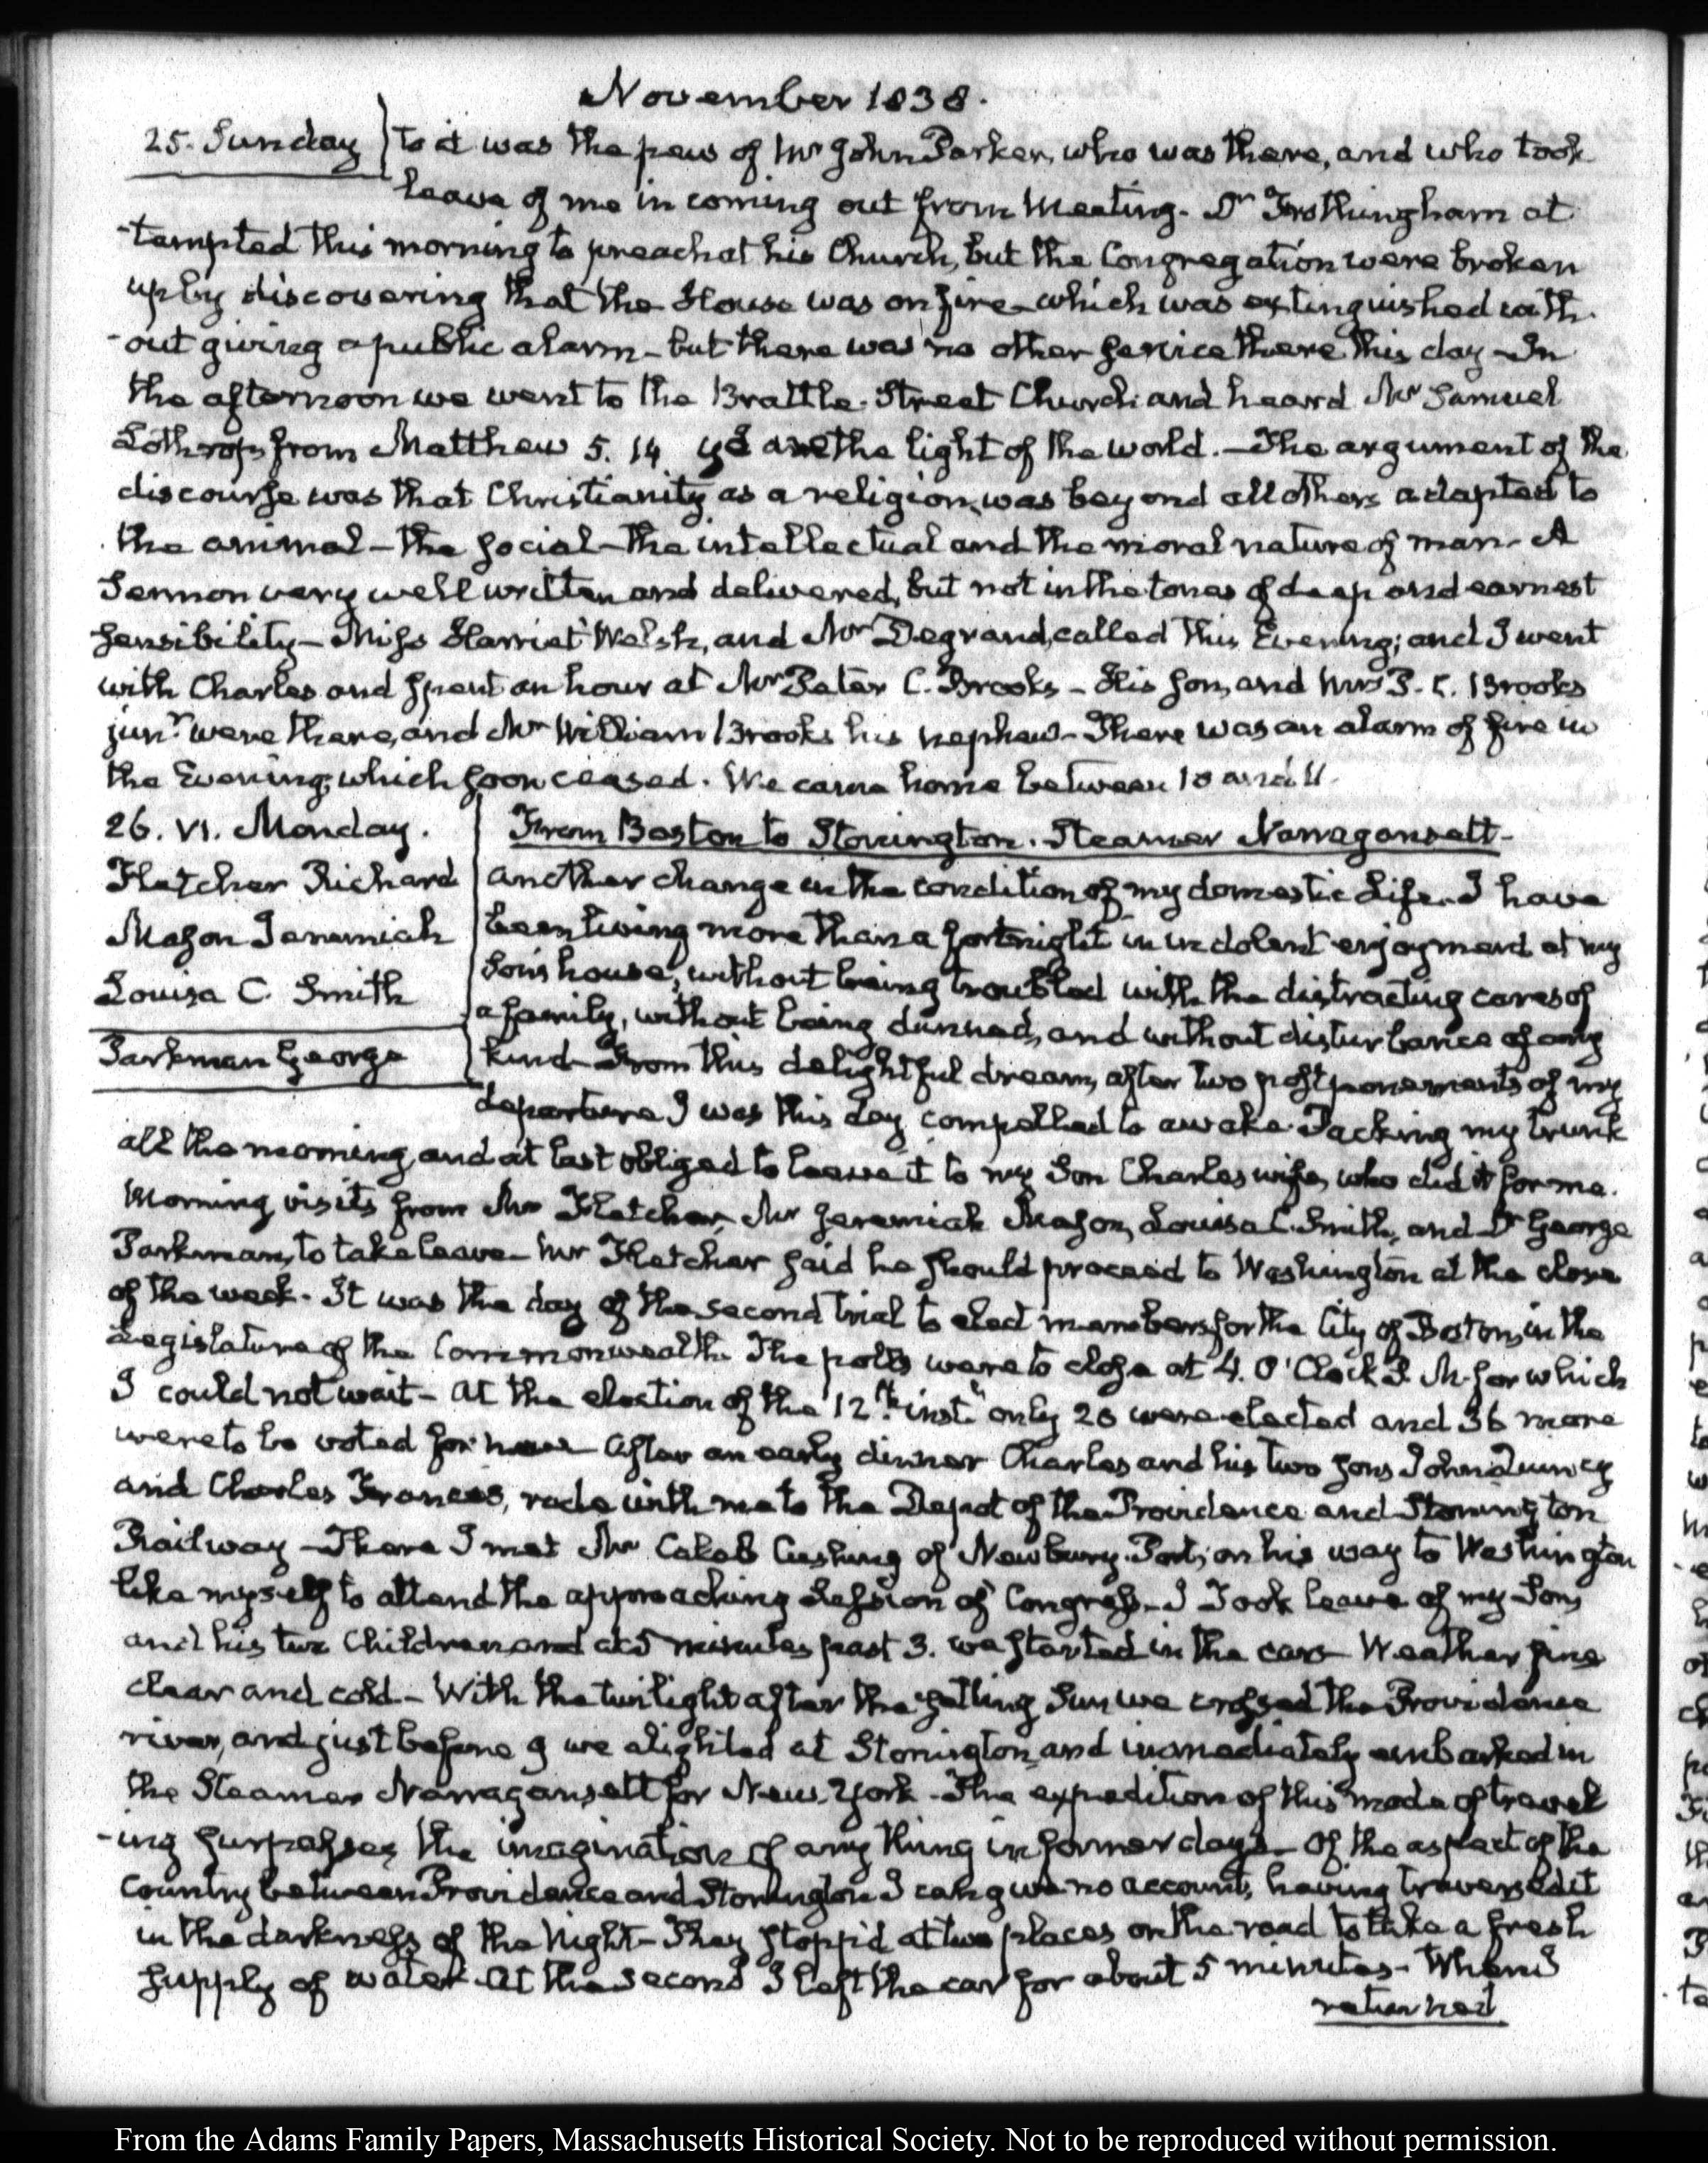 November 1838.
25. Sunday } to it was the pew of Mr John Parker, who was there, and who took
leave of me in coming out from Meeting. Dr Frothingham at
-tempted this morning to preach at his Church, but the Congregation were broken
up by discovering that the House was on fire which was extinguished with-
-out giving a public alarm - but there was no other service there this day - In
the afternoon we went to the Brattle-Street Church and heard Mr Samuel
Lothrop from Matthew 5. 14 ye are the light of the world. - The argument of the
discourse was that Christianity as a religion, was beyond all others adapted to
the animal - the social - the intellectual and the moral nature of man - A
Sermon very well written and delivered, but not in the tones of deep and earnest
sensibility - Miss Harriet Welsh, and Mr Degrand, called this Evening; and I went
with Charles and spent an hour at Mr Peter C. Brooks - His son, and Mrs P. C. Brooks
junr. were there, and Mr William Brooks his nephew - There was an alarm of fire in
the Evening, which soon ceased. We came home between 10 and 11.
26. VI. Monday.
Fletcher Richard
Mason Jeremiah
Louisa C. Smith
Parkman George
From Boston to Stonington. Steamer Narragansett -
another change in the condition of my domestic Life. I have
been living more than a fortnight in indolent enjoyment at my
Son's house, without being troubled with the distracting cares of
a family, without being dunned, and without disturbance of any
kind - From this delightful dream, after two postponements of my
departure I was this day compelled to awake. Packing my trunk
all the morning, and at last obliged to leave it to my Son Charles wife, who did it for me.
Morning visits from Mr Fletcher, Mr Jeremiah Mason, Louisa C. Smith, and Dr George
Parkman, to take leave - Mr Fletcher said he should proceed to Washington at the close
of the week. It was the day of the second trial to elect members for the City of Boston, in the
Legislature of the Commonwealth. The polls were to close at 4. O'Clock P. M. for which
I could not wait - At the election of the 12th. inst. only 20 were elected and 36 more
were to be voted for now After an early dinner Charles and his two sons John Quincy
and Charles Francis, rode with me to the Depot of the Providence and Stonington
Railway - There I met Mr Caleb Cushing of Newbury-Port, on his way to Washington
like myself to attend the approaching Session of Congress - I Took leave of my Son,
and his two Children and at 5 minutes past 3. we started in the cars - Weather fine
clear and cold - With the twilight after the setting Sun we crossed the Providence
river, and just before 9 we alighted at Stonington, and immediately embarked in
the Steamer Narragansett for New-York - The expedition of this mode of travel
-ing surpasses the imagination of any thing in former days - Of the aspect of the
Country between Providence and Stonington I can give no account, having traversed it
in the darkness of the Night - They stopp'd at two places on the road to take a fresh
supply of water - At the second I left the car for about 5 minutes - When I
returned
From the Adams Family Papers, Massachusetts Historical Society. Not to be reproduced without permission.